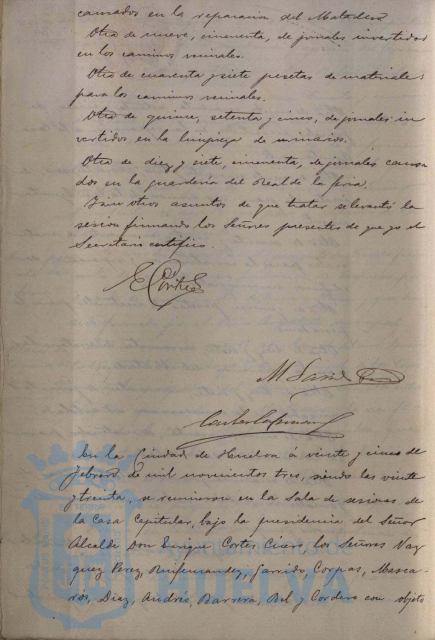 causados en la reparacion del Matadero
Otro de nueve, cincuenta, de jornales invertidos
en los caminos vecinales.
Otro de cuarenta y siete pesetas de materiales
para los caminos vecinales.
Otro de quince, setenta y cinco, de jornales in
vertidos en la limpieza de urinarios.
Otro de diez y siete, cincuenta, de jornales causa
dos en la guarderia del Real de la feria.
Sin otros asuntos de que tratar se levantó la
sesion firmando los Señores presentes de que yo el
Secretario certifico.
E Cortés
En la Ciudad de Huelva á veinte y cinco de
Febrero de mil novecientos tres, siendo las veinte
y treinta, se reunieron en la Sala de sesiones de
la Casa Capitular, bajo la presidencia del Señor
Alcalde Don Enrique Cortés Cisero, los Señores Vaz
quez Perez, Ruifernandez, Garrido Corpas, Masca
ros, Diaz, Andrés, Barrera, Bel y Cordero con objeto
HUELVA